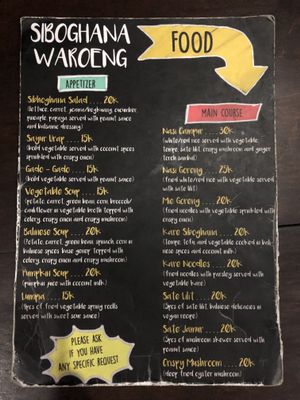 SIBOGHANA
WAROENG
FOOD
APPETIZER
Siboghana Salad .... 20k
(lettuce, carrot, potato/hongkwang, cucumber,
pineaple, papaya served with peanut sauce
and balsamic dressing)
Sayur Urap .... 15k
(boiled vegetable served with coconut spices
sprinkled with crispy onion)
Gado - Gado .... 15k
(boiled vegetable served with peanut sauce)
Vegetable Soup .... 15k
(potato, carrot, green bean, corn, broccoli/
cauliflower in vegetable broth topped with
celery, crispy onion and crispy onion)
Balinese Soup .... 20k
(Potato, carrot, green bean, spinach, corn in
balinese spices base gravy topped with
celery, crispy onion and crispy onion)
Pumpkin Soup .... 20k
(pumpkin juice with coconut milk)
Lumpia .... 15k
(3pcs of fried vegetable spring rolls
served with sweet sour sauce)
PLEASE ASK
IF YOU HAVE
ANY SPECIFIC REQUEST
MAIN COURSE
Nasi Campur .... 30k
(white/red rice served with vegetable,
tempe, sate lilit, crispy mushroom and ginger
torch sambal)
Nasi Goreng .... 25k
(fried white/red rice with vegetable served
with sate lilit)
Mie Goreng .... 20k
(fried noodles with vegetable sprinkled with
crispy onion)
Kare Siboghana .... 20k
(Tempe, Tofu, and vegetable cooked in bali-
nese spices and coconut milk)
Kare Noodles .... 20k
(fried noodles with parsley served with
vegetable kare)
Sate Lilit .... 20k
(5pcs of sate lilit, balinese delicacies in
vegan recipe)
Sate Jamur .... 20k
(5pcs of mushroom skewer served with
peanut sauce)
Crispy Mushroom .... 20k
(deep fried oyster mushroom)